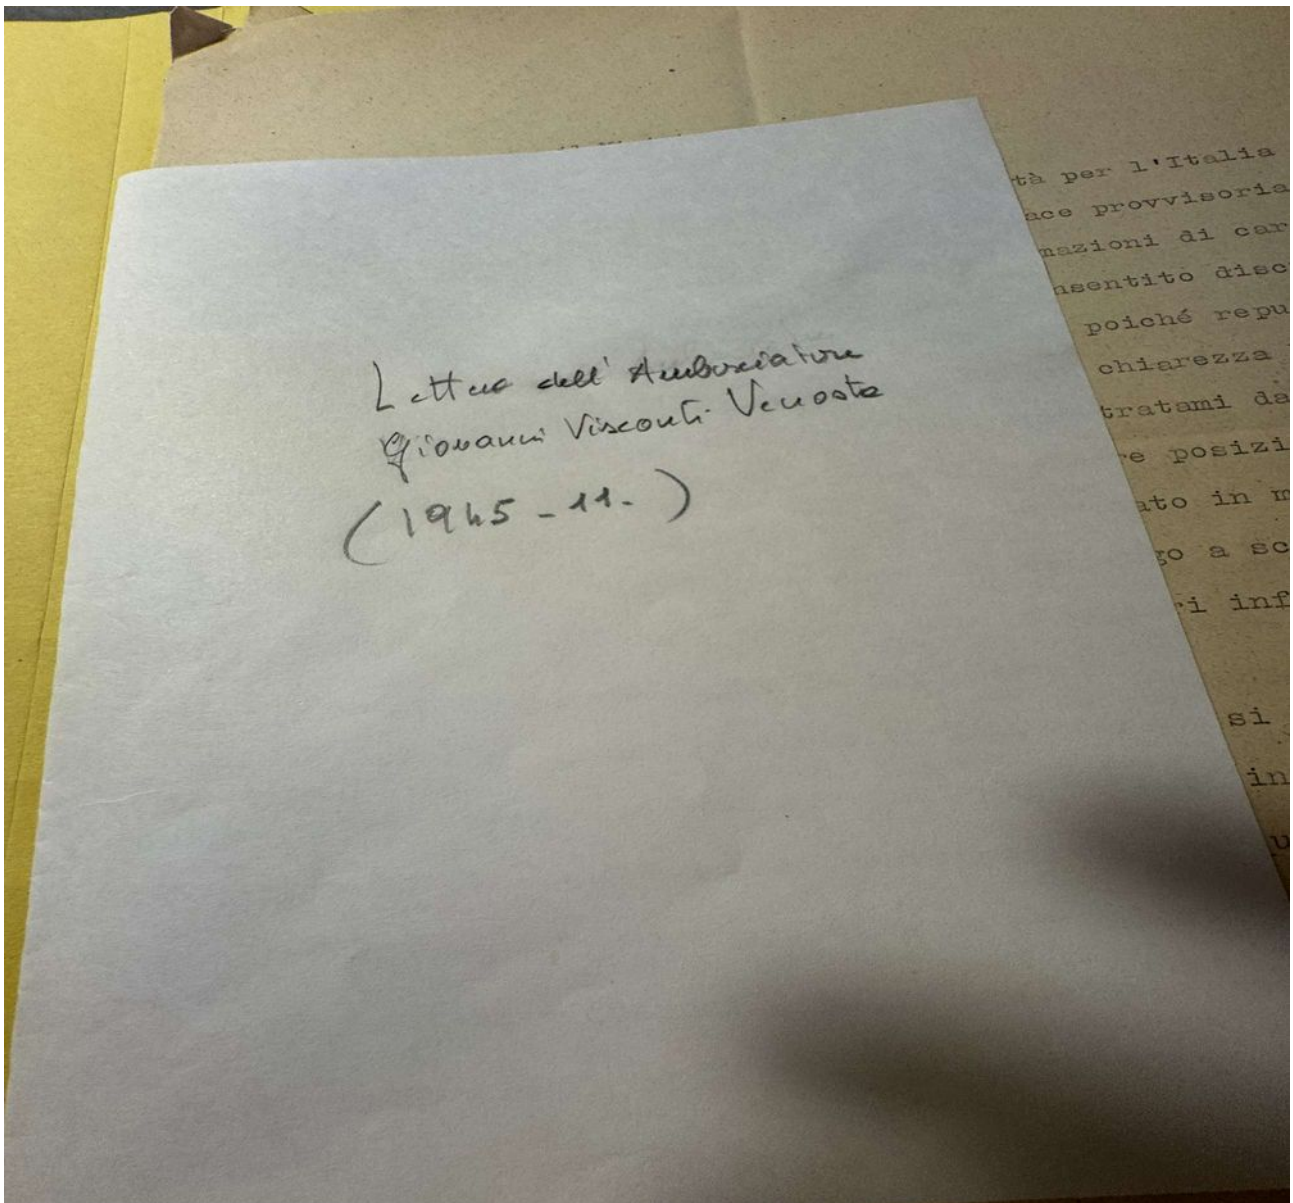 Lettera dell'Ambasciatore
Giovanni Visconti Venosta
(1945-11-)
tà per l'Italia
ace provvisoria
mazioni di car
nsentito disc
poiché repu
chiarezza
tratami da
e posizi
ato in m
go a sc
ri inf
si
in
u